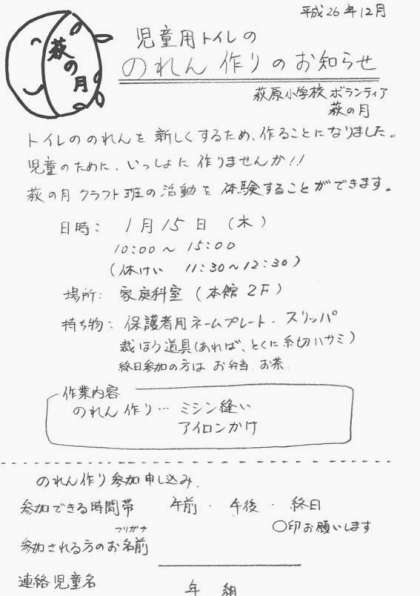 平成26年12月
萩の月
児童用トイレの
のれん作りのお知らせ
萩原小学校 ボランティア
萩の月
トイレののれんを新しくするため、作ることになりました。
児童のために、いっしょに作りませんか!!
萩の月クラフト班の活動を体験することができます。
日時: 1月15日(木)
10:00～15:00
(休けい 11:30～12:30)
場所: 家庭科室(本館2F)
持ち物: 保護者用ネームプレート・スリッパ
裁ほう道具(あれば、とくに糸切ハサミ)
終日参加の方は お弁当、お茶
作業内容
のれん作り… ミシン縫い
アイロンかけ
のれん作り参加申し込み
参加できる時間帯 午前・午後・終日
○印お願いします
フリガナ
参加される方のお名前
連絡児童名 年 組